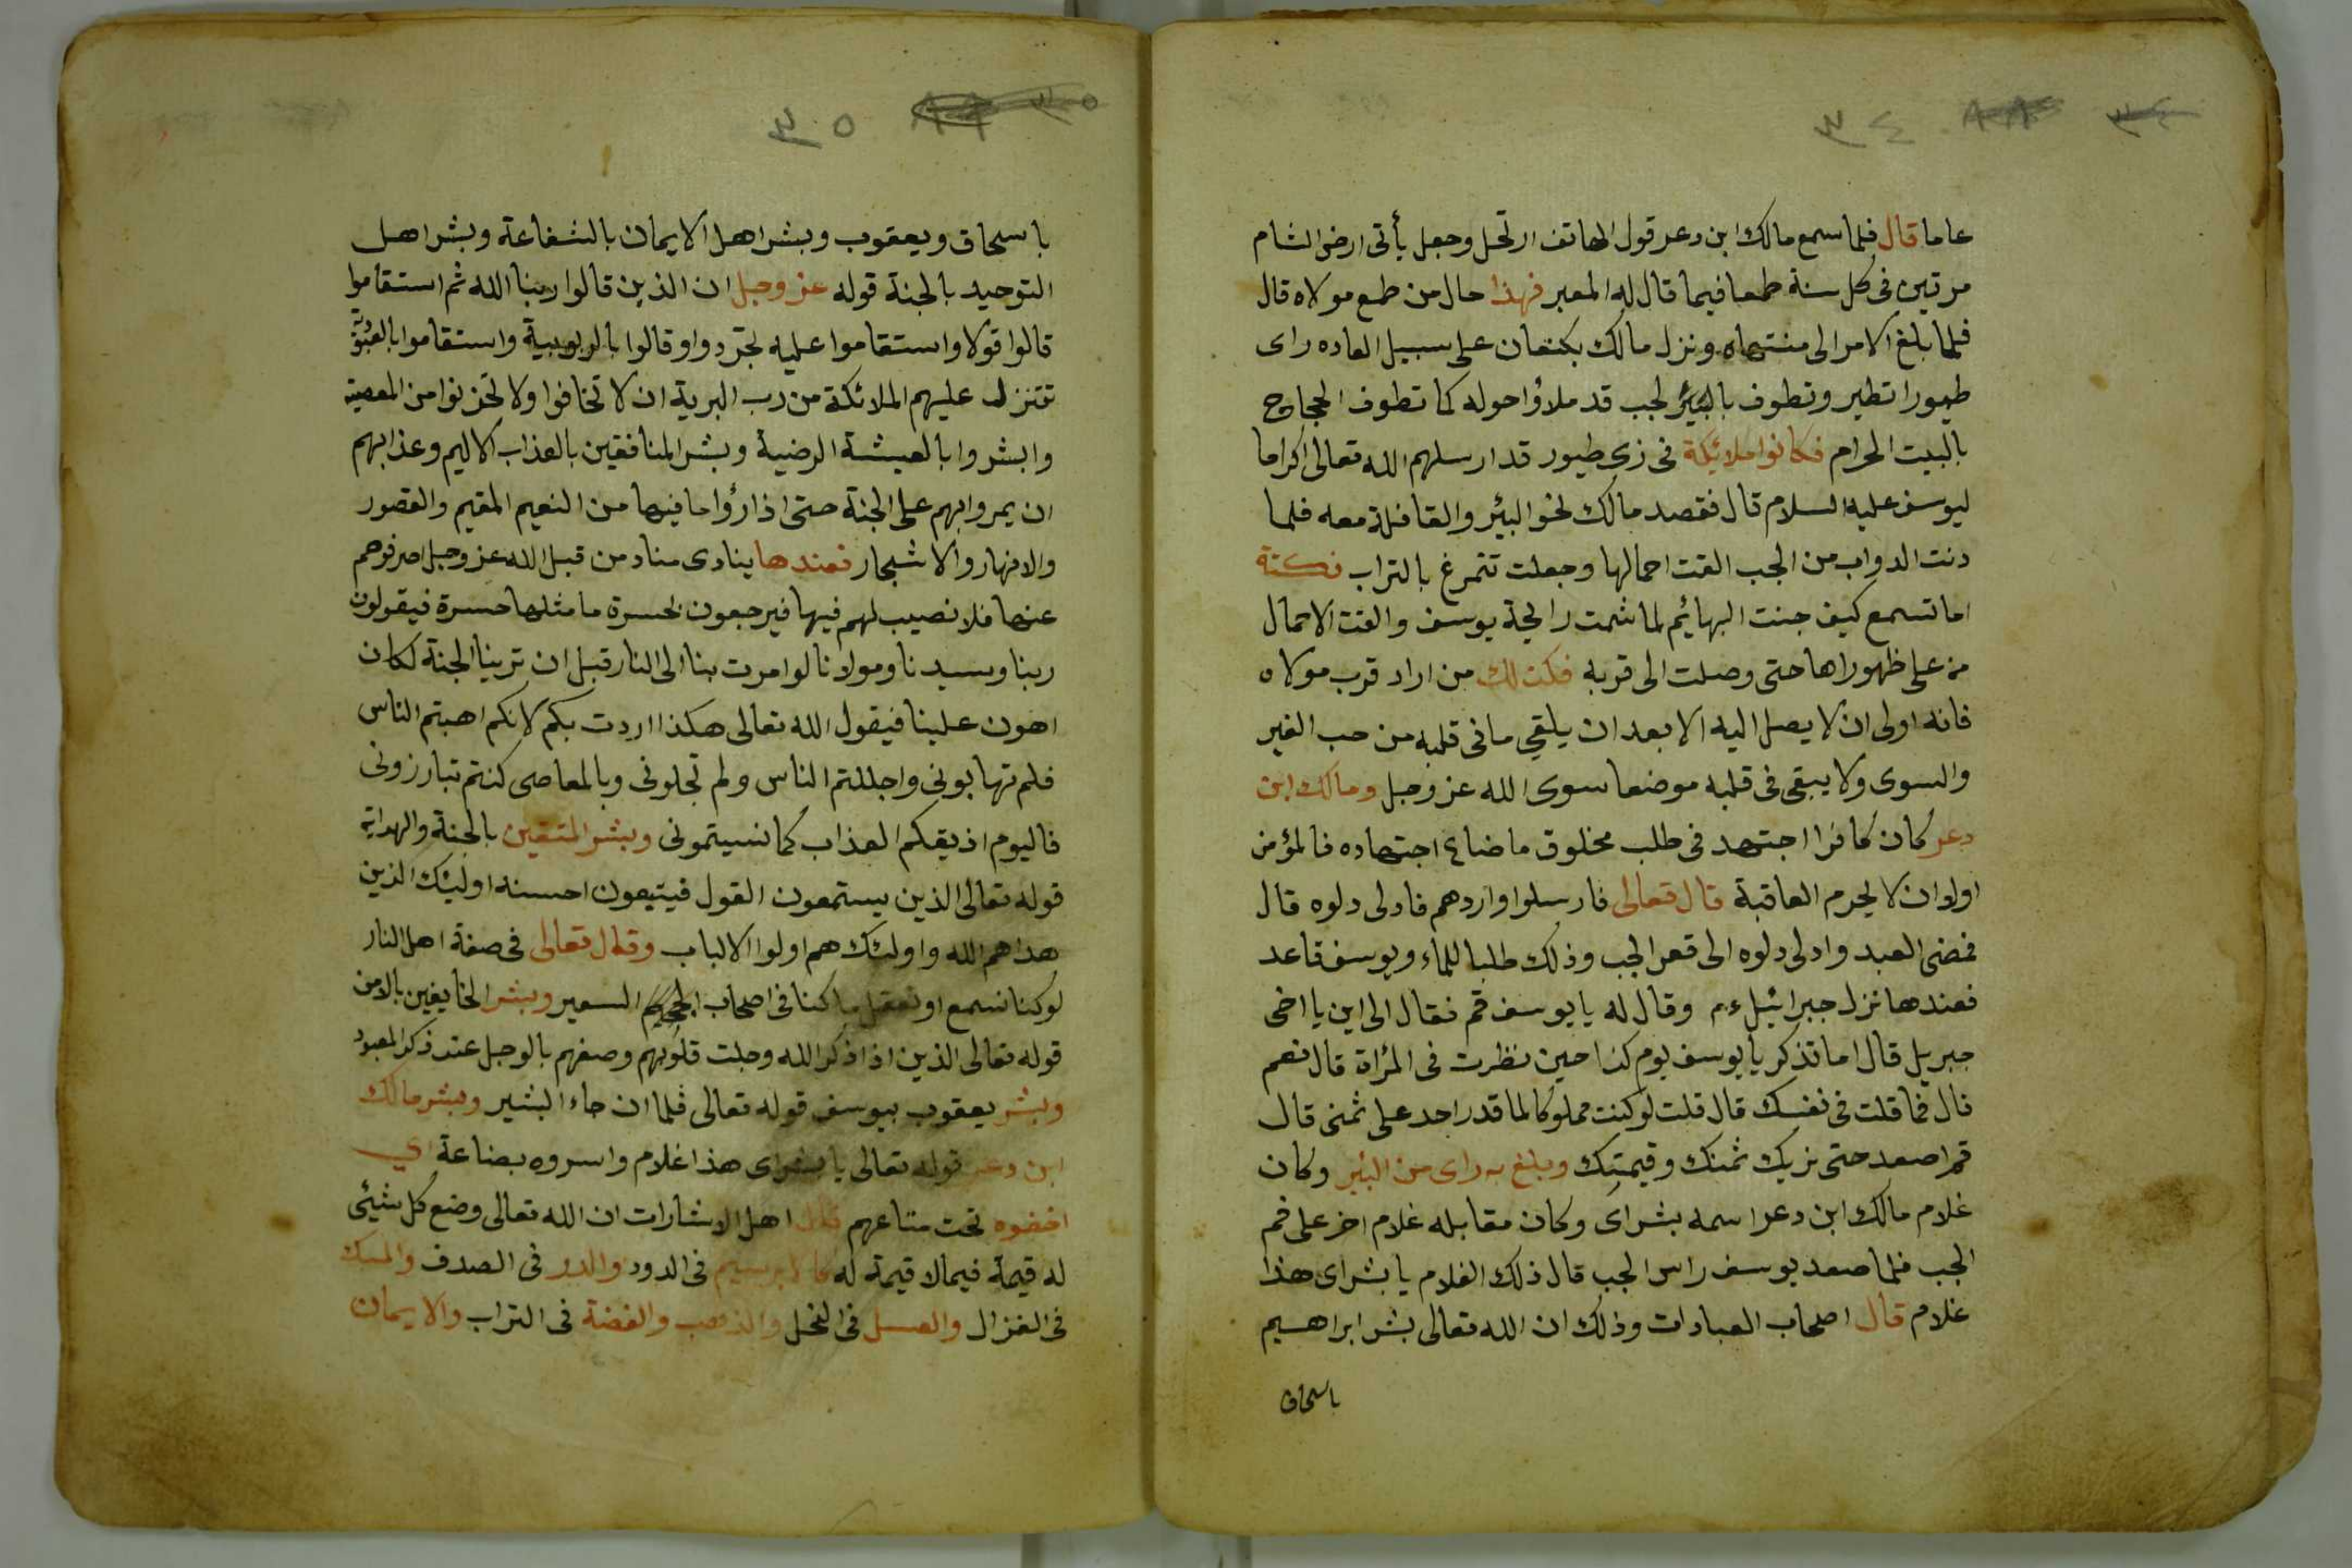 ٣٤
عاما قال فلما سمع مالك ابن دعر قول الهاتف ارتحل وجعل يأتى ارض الشام
مرتين فى كل سنة طمعا فيما قال له المعبر فهذا حال من طمع مولاه قال
فلما بلغ الامر الى منتهاه ونزل مالك بكنعان على سبيل العاده راى
طيورا تطير وتطوف بالبئر لجب قد ملاؤا حوله كما تطوف الحجاج
بالبيت الحرام فكانوا ملائكة فى زى طيور قد ارسلهم الله تعالى اكراما
ليوسف عليه السلام قال فقصد مالك نحو البئر والقافلة معه فلما
دنت الدواب من الجب القت احمالها وجعلت تتمرغ بالتراب نكتة
اما تسمع كيف جنت البهائم لما شمت رايحة يوسف والقت الاحمال
من على ظهوراها حتى وصلت الى قربه فكذلك من اراد قرب مولاه
فانه اولى ان لا يصل اليه الا بعد ان يلقي ما فى قلبه من حب الغير
والسوى ولا يبقى فى قلبه موضعا سوى الله عز وجل ومالك ابن
دعر كان كافرا اجتهد فى طلب مخلوق ما ضاع اجتهاده فالمؤمن
اولو ان لا يحرم العاقبة قال تعالى فارسلوا واردهم فادلى دلوه قال
فمضى العبد وادلى دلوه الى قعر الجب وذلك طلبا للماء ويوسف قاعد
فعندها نزل جبرائيل ءم وقال له يا يوسف قم فقال الى اين يا اخى
جبريل قال اما تذكر يا يوسف يوم كذا حين نظرت فى المرأة قال نعم
قال فما قلت فى نفسك قال قلت لو كنت مملوكا لما قدر احد على ثمنى قال
قم اصعد حتى نريك ثمنك وقيمتك وبلغ به راى من البئر وكان
غلام مالك ابن دعر اسمه بشراى وكان مقابله غلام اخر على فم
الجب فلما صعد يوسف راس الجب قال ذلك الغلام يا بشراى هذا
غلام قال اصحاب العبادات وذلك ان الله تعالى بشر ابراهيم
باسحاق
٣٥
باسحاق ويعقوب وبشر اهل الايمان بالشفاعة وبشر اهل
التوحيد بالجنة قوله عز وجل ان الذين قالوا ربنا الله ثم استقاموا
قالوا قولا واستقاموا عليه لجردوا وقالوا بالربوبية واستقاموا بالعبودية
تتنزل عليهم الملائكة من رب البرية ان لا تخافوا ولا تحزنوا من المعصية
وابشروا بالعيشة الرضية وبشر المنافقين بالعذاب الاليم وعذابهم
ان يمروا بهم على الجنة حتى اذا رؤا ما فيها من النعيم المقيم والقصور
والانهار والاشجار فعندها ينادى مناد من قبل الله عز وجل اصرفوهم
عنها فلا نصيب لهم فيها فيرجعون بحسرة ما مثلها حسرة فيقولون
ربنا وسيدنا ومولانا لو امرت بنا الى النار قبل ان ترينا الجنة لكان
اهون علينا فيقول الله تعالى هكذا اردت بكم لانكم اهبتم الناس
فلم تهابونى واجللتم الناس ولم تجلونى وبالمعاصى كنتم تبارزونى
فاليوم اذيقكم العذاب كما نسيتمونى وبشر المتقين بالجنة والهداية
قوله تعالى الذين يستمعون القول فيتبعون احسنه اوليئك الذين
هداهم الله واولئك هم اولوا الالباب وقال تعالى فى صفة اهل النار
لو كنا نسمع او نعقل ما كنا فى اصحاب السعير وبشر الخايفين بالامن
قوله تعالى الذين اذا ذكر الله وجلت قلوبهم وصفهم بالوجل عند ذكر المعبود
وبشر يعقوب بيوسف قوله تعالى فلما ان جاء البشير وبشر مالك
ابن دعر قوله تعالى يا بشراى هذا غلام واسروه بضاعة اي
اخفوه تحت متاعهم قال اهل الاشارات ان الله تعالى وضع كل شيئى
له قيمة فيما لا قيمة له كالابريسيم فى الدود والدر فى الصدف والمسك
فى الغزال والعسل فى النحل والذهب والفضة فى التراب والايمان